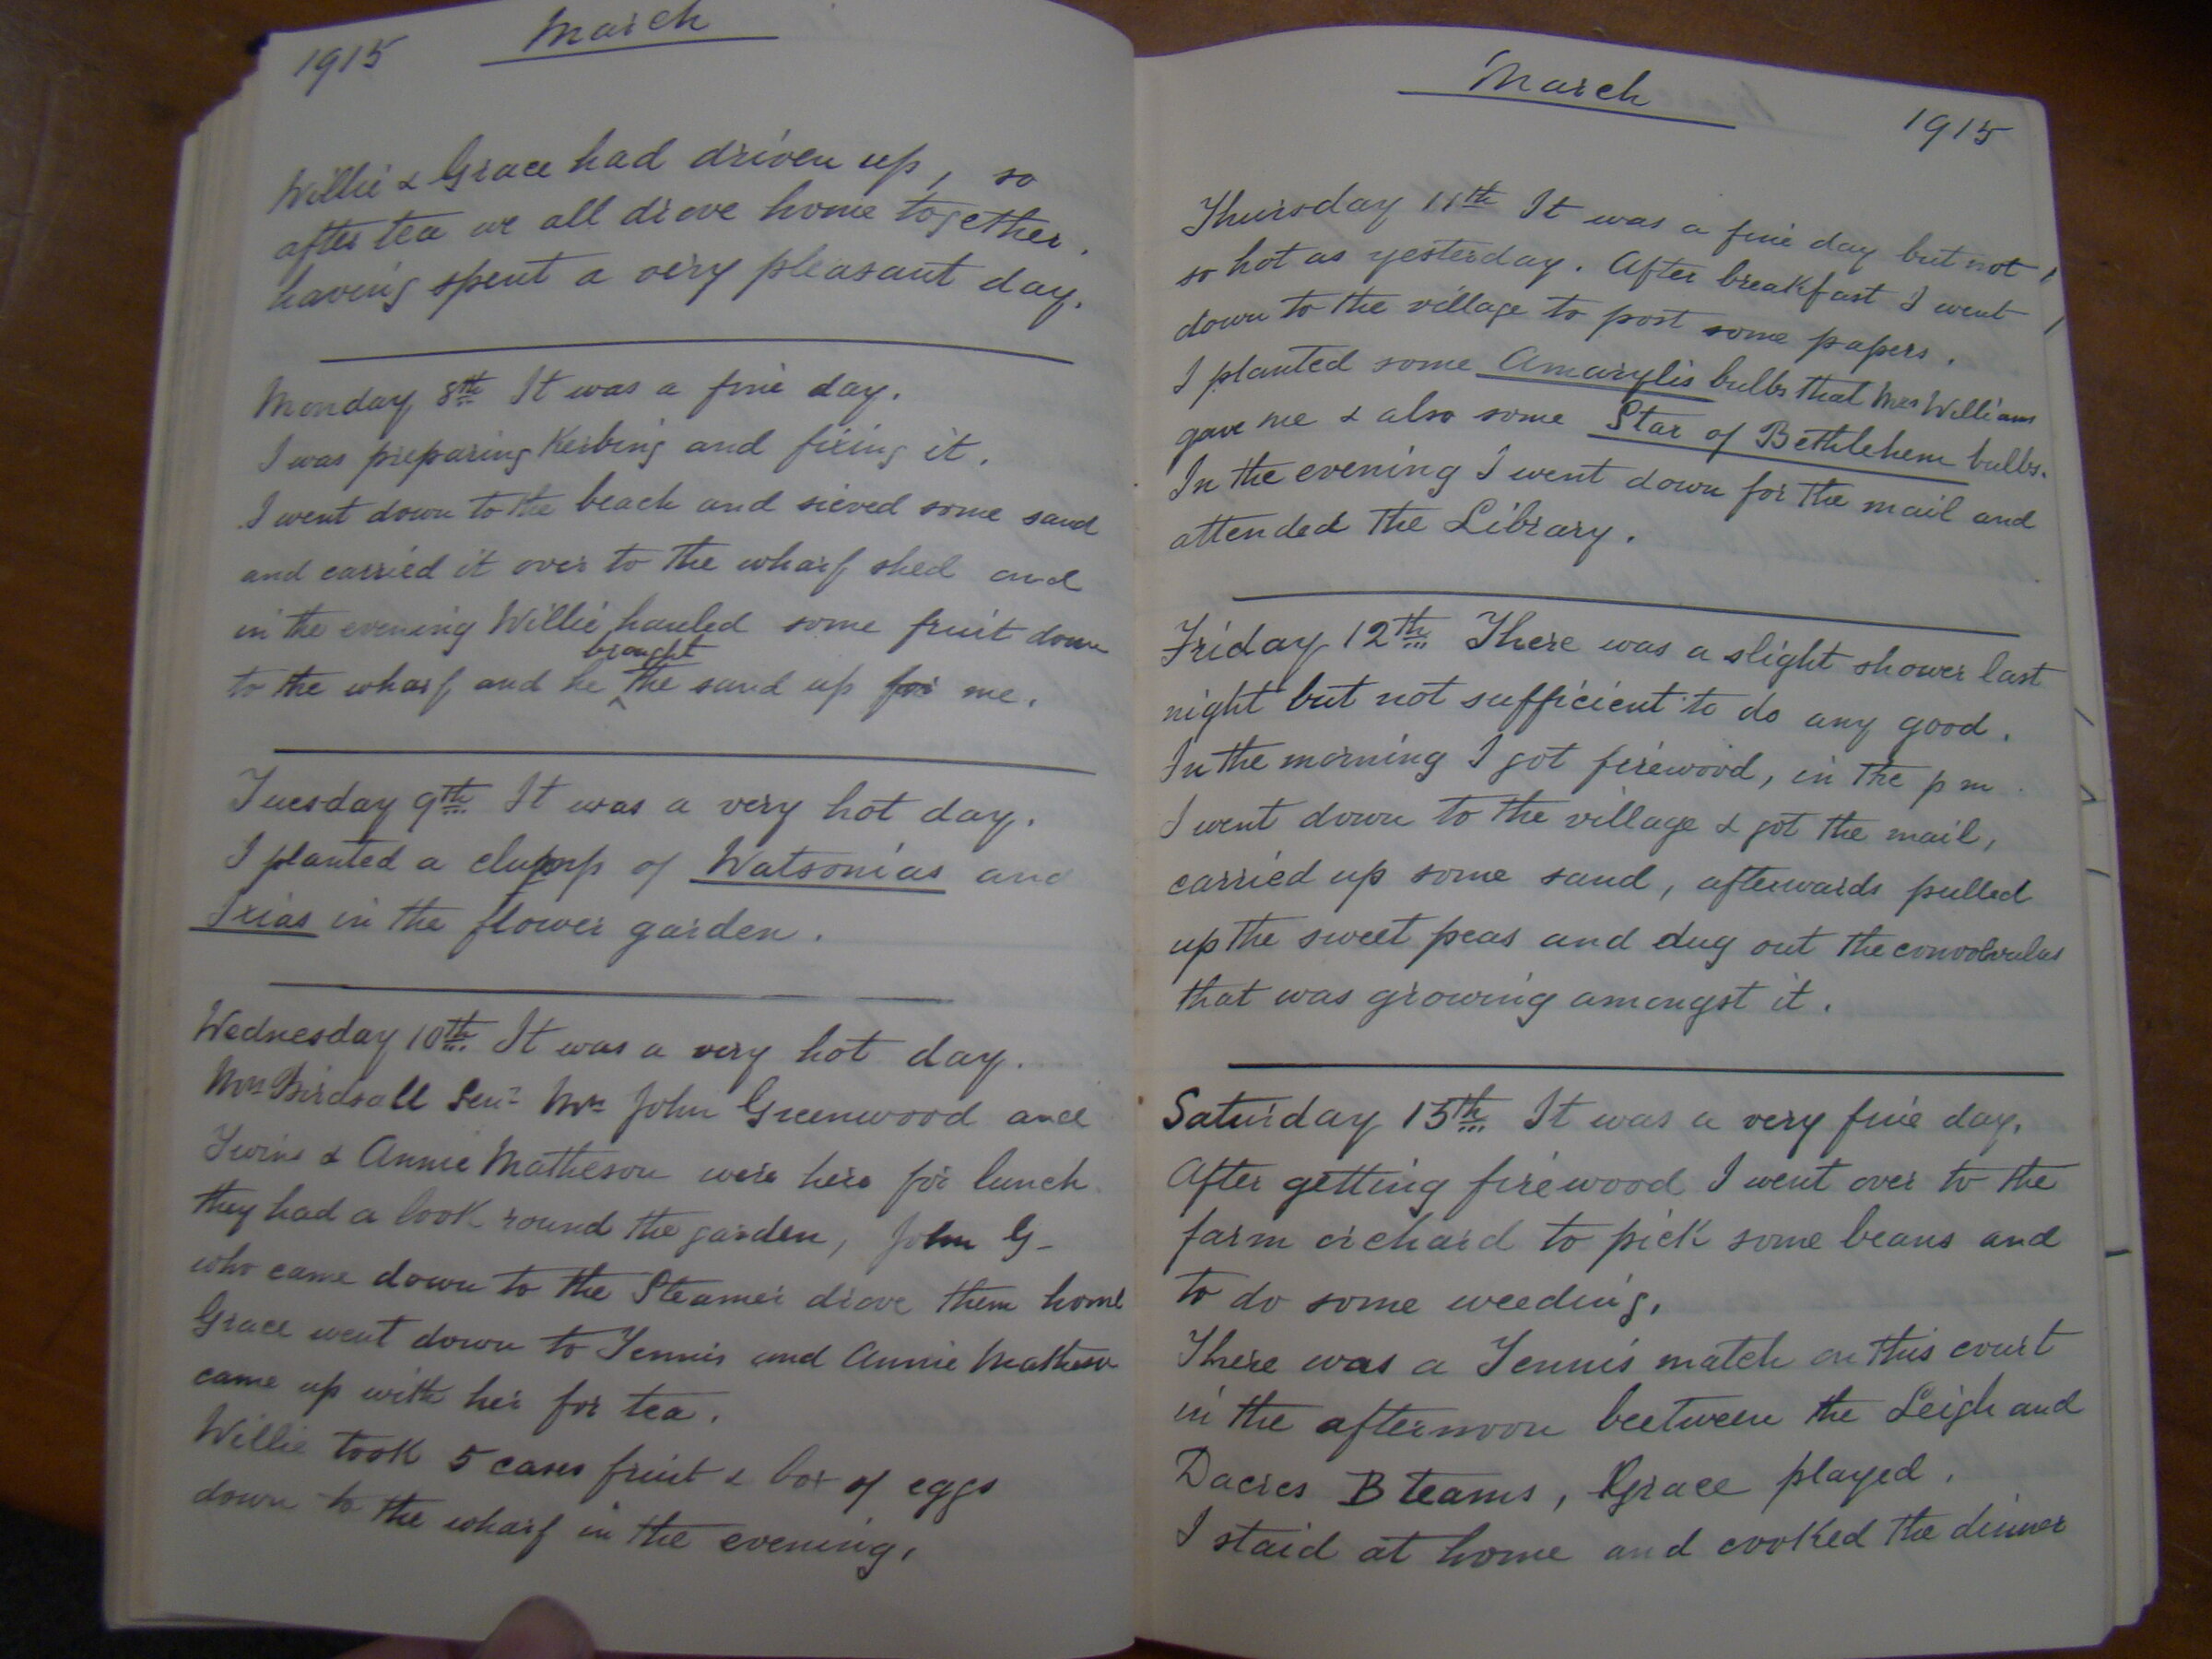 1915
March
Willie & Grace had driven up, so
after tea we all drove home together.
having spent a very pleasant day.
Monday 8th It was a fine day.
I was preparing Kerbing and fixing it.
I went down to the beach and sieved some sand
and carried it over to the wharf shed and
in the evening Willie hauled some fruit down
to the wharf and he brought the sand up for me.
Tuesday 9th It was a very hot day.
I planted a clump of Watsonias and
Ixias in the flower garden.
Wednesday 10th It was a very hot day.
Mrs Birdsall Senr Mrs John Greenwood and
Twins & Annie Matheson were here for lunch
they had a look round the garden, John G-
who came down to the Steamer drove them home
Grace went down to Tennis and Annie Matheson
came up with her for tea.
Willie took 5 cases fruit & box of eggs
down to the wharf in the evening.
March
1915
Thursday 11th It was a fine day but not
so hot as yesterday. After breakfast I went
down to the village to post some papers.
I planted some Amarylis bulbs that Mrs Williams
gave me & also some Star of Bethlehem bulbs.
In the evening I went down for the mail and
attended the Library.
Friday 12th There was a slight shower last
night but not sufficient to do any good.
In the morning I got firewood, in the pm
I went down to the village & got the mail,
carried up some sand, afterwards pulled
up the sweet peas and dug out the convolvulus
that was growing amongst it.
Saturday 13th It was a very fine day.
After getting firewood I went over to the
farm orchard to pick some beans and
to do some weeding.
There was a Tennis match on this court
in the afternoon beetween the Leigh and
Dacres B teams, Grace played.
I staid at home and cooked the dinner